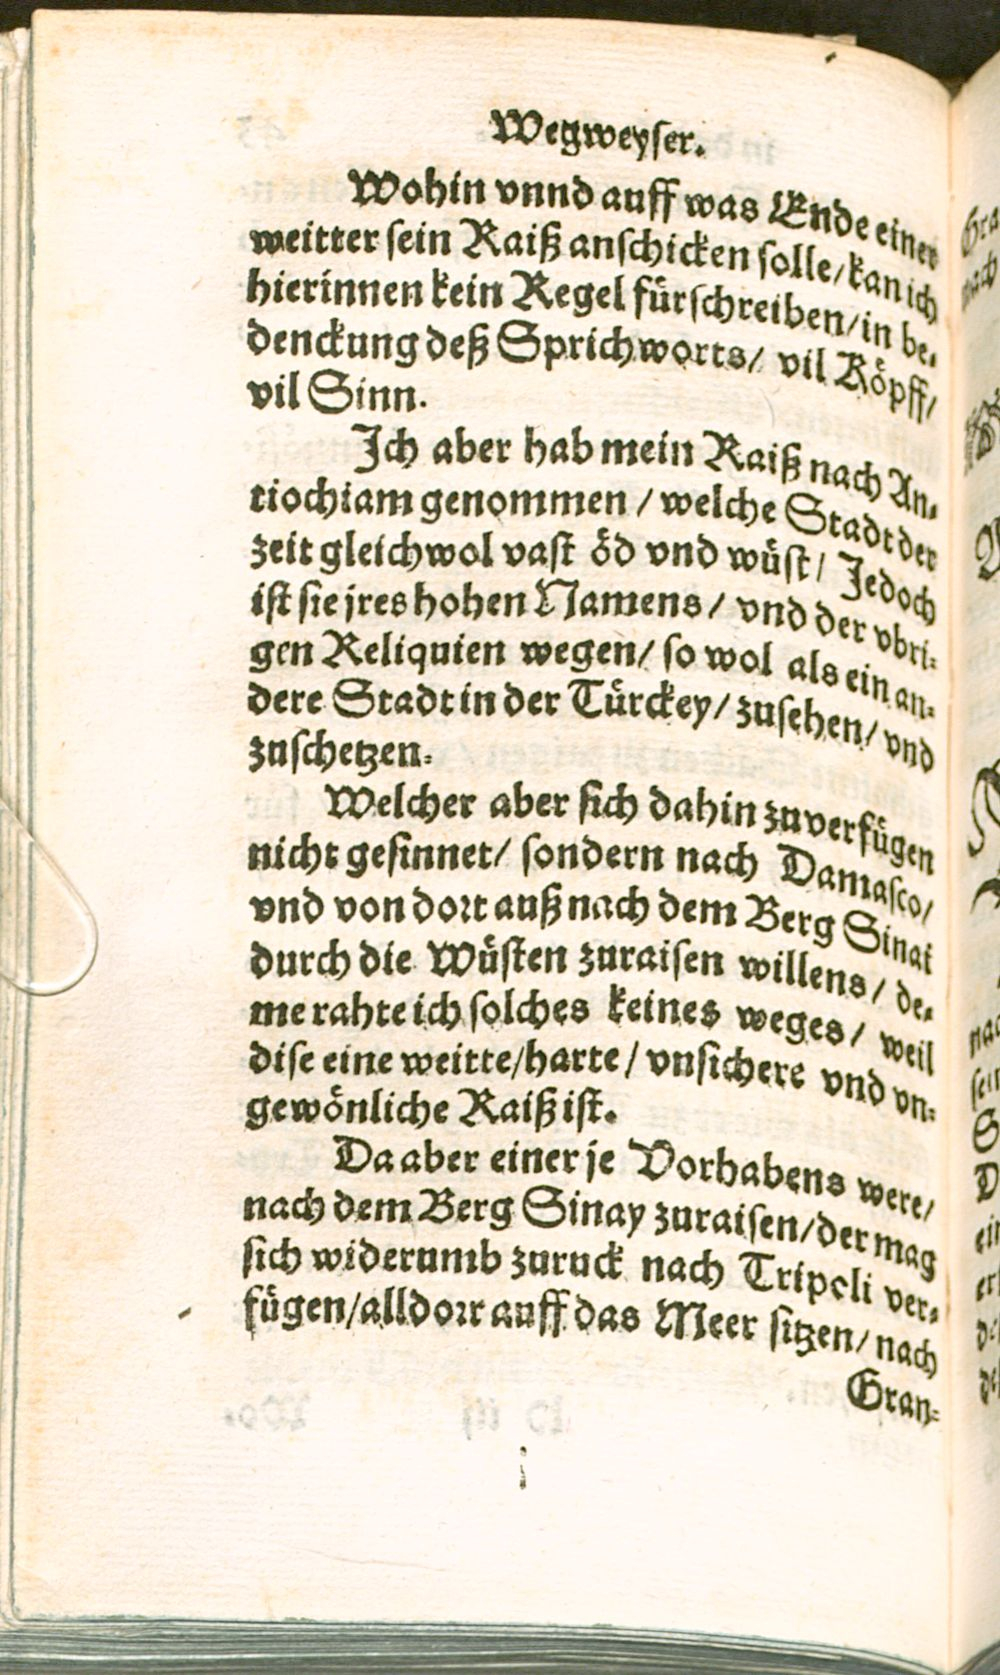 Wegweyser.
Wohin vnnd auff was Ende einer
weitter sein Raiß anschicken solle/ kan ich
hierinnen kein Regel fürschreiben/ in be-
denckung deß Sprichworts/ vil Köpff/
vil Sinn.
Ich aber hab mein Raiß nach An-
tiochiam genommen / welche Stadt der
zeit gleichwol vast öd vnd wüst/ Jedoch
ist sie jres hohen Namens/ vnd der vbri-
gen Reliquien wegen/ so wol als ein an-
dere Stadt in der Türckey/ zusehen/ vnd
zuschetzen.
Welcher aber sich dahin zuverfügen
nicht gesinnet/ sondern nach Damasco/
vnd von dort auß nach dem Berg Sinai
durch die Wüsten zuraisen willens/ de-
me rahte ich solches keines weges/ weil
dise eine weitte/harte/ vnsichere vnd vn-
gewönliche Raiß ist.
Da aber einer je Vorhabens were/
nach dem Berg Sinay zuraisen/der mag
sich widerumb zuruck nach Tripoli ver-
fügen/alldort auff das Meer sitzen/ nach
Gran-